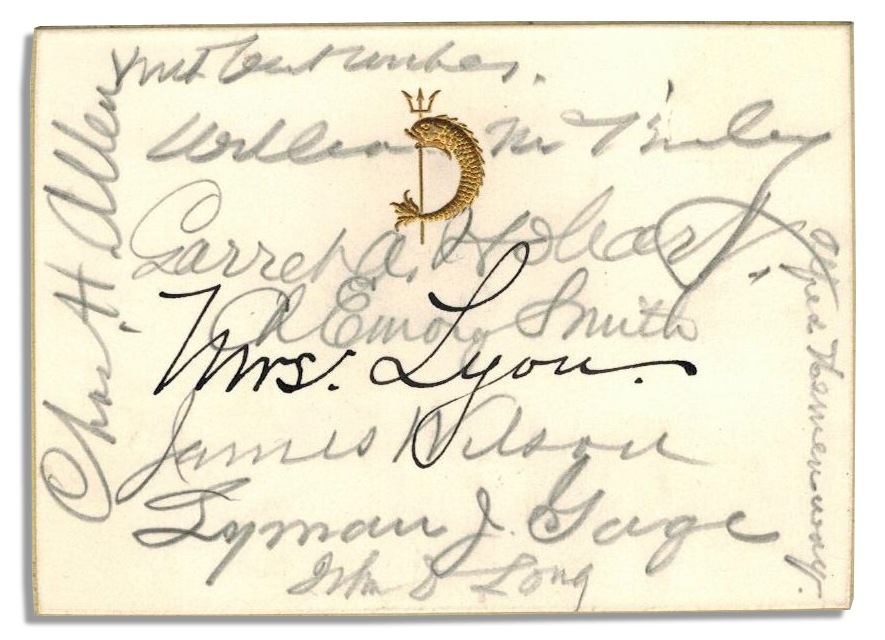 With best wishes.
William McKinley
Garret A. Hobart
Ch Emory Smith
Mrs. Lyon.
James Wilson
Lyman J. Gage
John D Long
Chas. H. Allen
Alfred Hemenway.